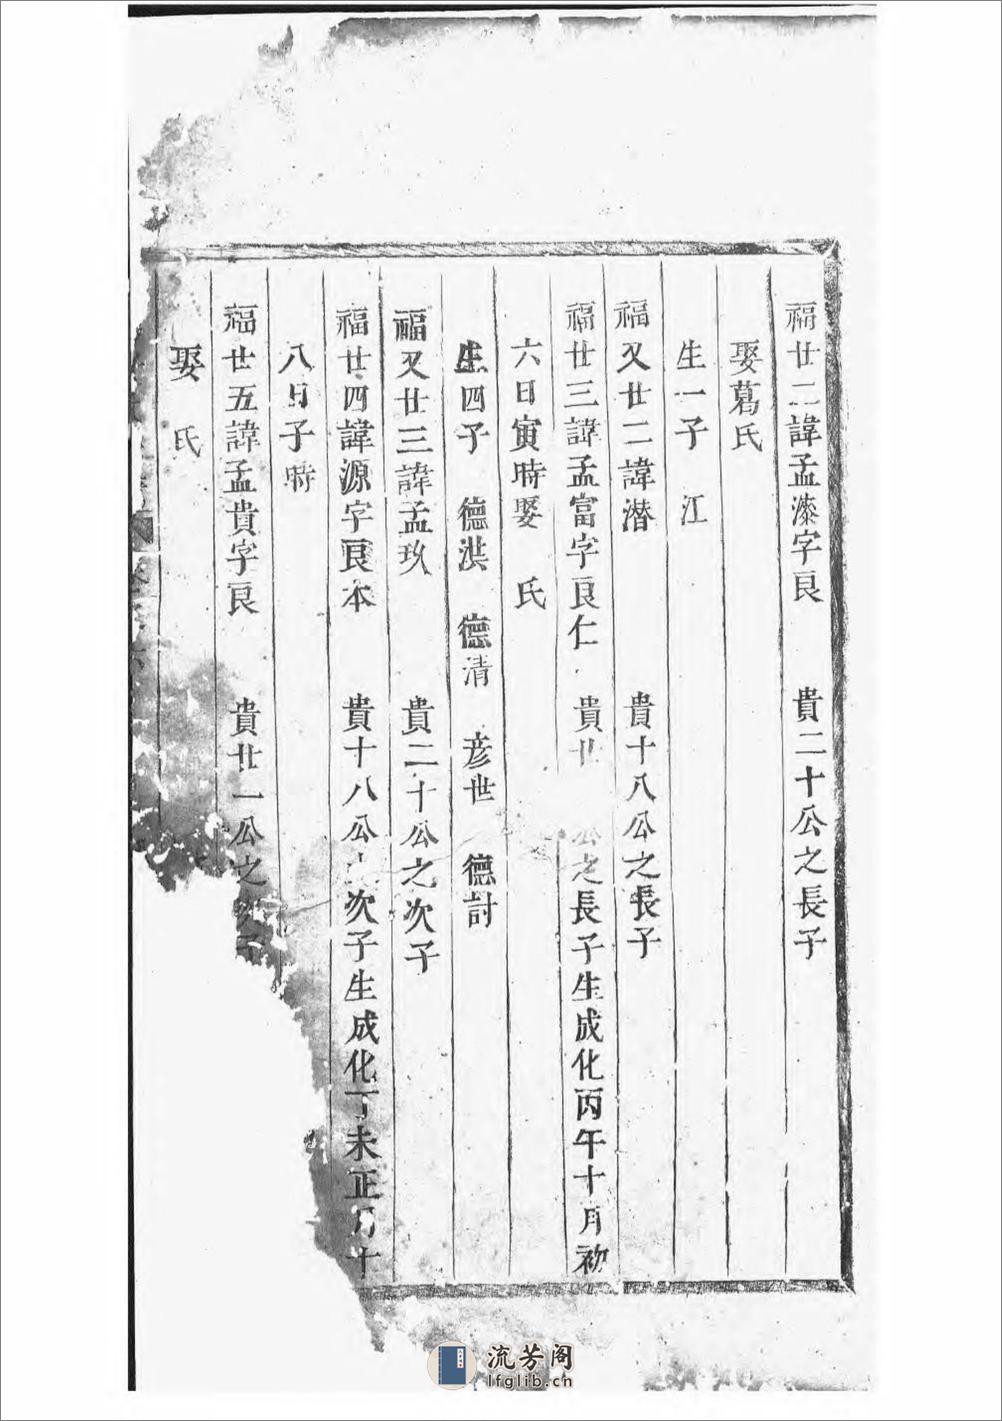 福廿二諱孟漆字良　貴二十公之長子
娶葛氏
生一子　江
福又廿二諱潜　貴十八公之長子
福廿三諱孟富字良仁　貴廿　公之長子生成化丙午十月初
六日寅時娶　氏
生四子　德洪　德清　彦世　德討
福又廿三諱孟玖　貴二十公之次子
福廿四諱源字良本　貴十八公之次子生成化丁未正月十
八日子時
福廿五諱孟貴字良　貴廿一公之次子
娶　氏
流芳阁
lfglib.cn